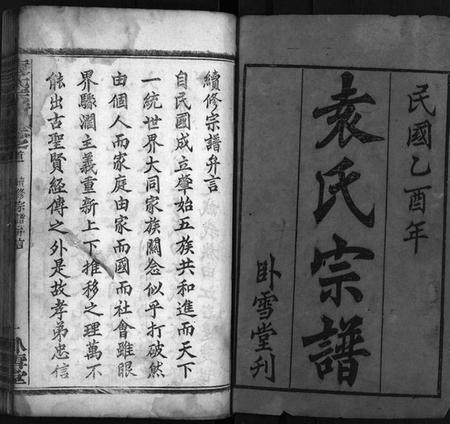 民國乙酉年
袁氏宗譜
卧雪堂刊
續修宗譜弁言
自民國成立肇始五族共和進而天下
一統世界大同家族關念似乎打破然
由個人而家庭由家而國而社會雖眼
界縣濶主義重新上下推移之理萬不
能出古聖賢經傳之外是故孝弟忠信